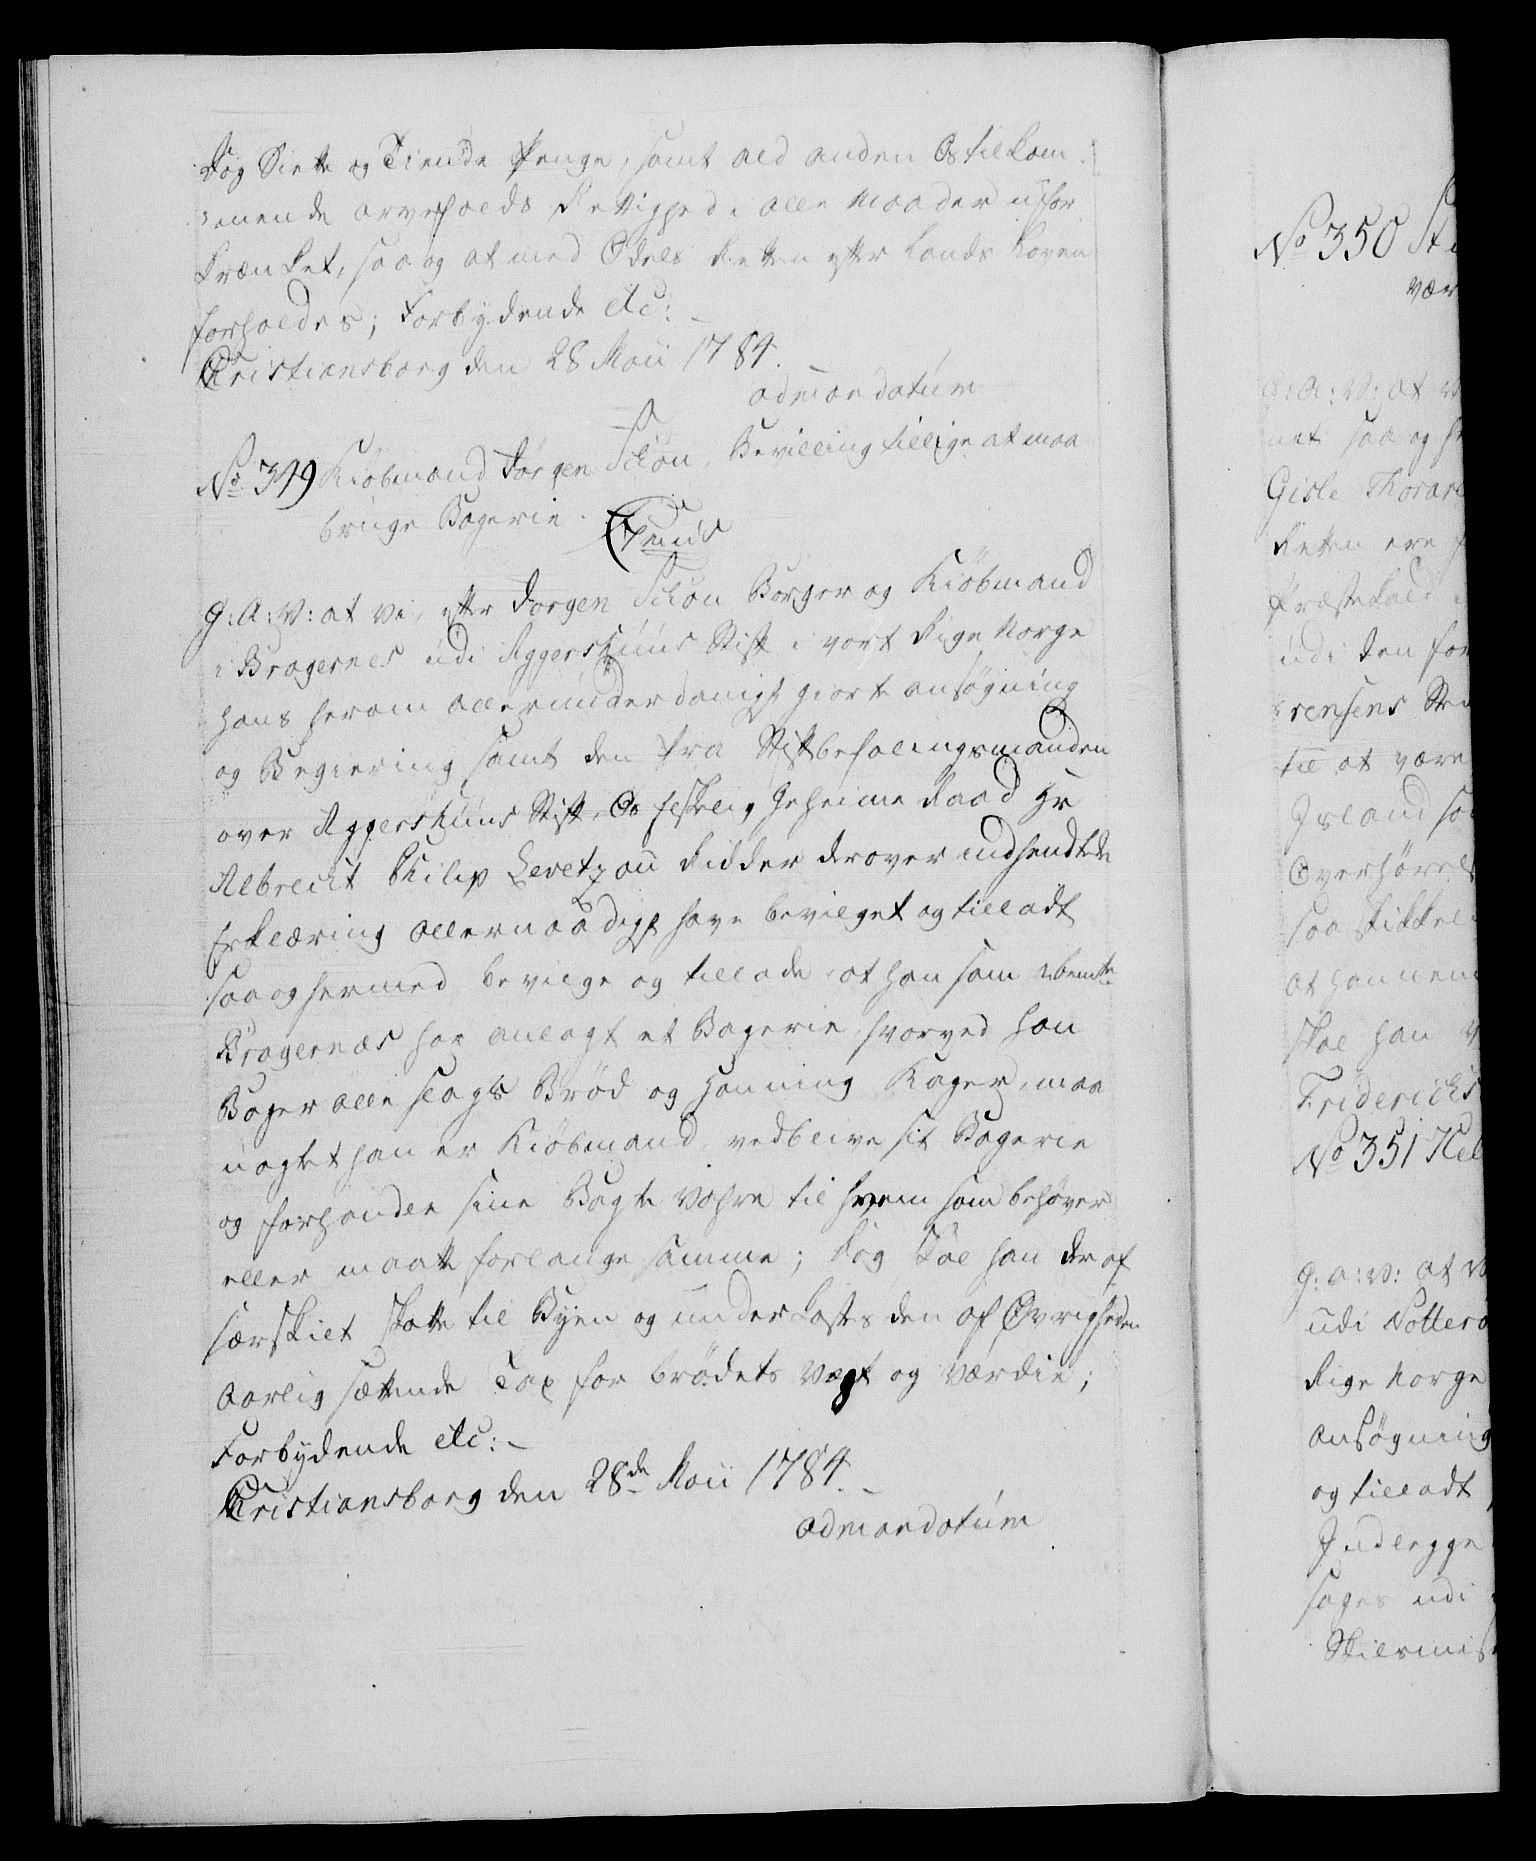 dog Siette og Tiende Penge, samt ald anden Os tilkom-
mende arvefalds Rettighed i alle Maader ufor
krænket, saa og at med Odels Retten efter Lands Loven
forholdes; Forbydende etc:
Christiansborg den 28 Maii 1784.
ad mandatum
No 349 Kiøbmand Jørgen Schou, Bevilling tillige at maa
bruge Bagerie.
G: A: V: at vi, efter Jørgen Schou Borger og Kiøbmand
i Bragernes udi Aggershuus Stift i vort Rige Norge
hans herom allerunderdanigst giorte ansøgning
og Begiering samt den fra Stiftbefalingsmanden
over Aggershuus Stift, Os Elskelig Geheime Raad Hr
Albrecht Philip Levetzou Ridder derover indsendte
Erklæring allernaadigst have bevilget og tilladt
saa og hermed bevilge og tillade, at han som ibemte
Bragernæs har anlagt et Bagerie, hvorved han
Bager alle slags Brød og Honning Kager, maa
uagtet han er Kiøbmand, vedblive sit Bagerie
og forhandle sine Bagte Vahre til hvem som behøver
eller maatte forlange samme; dog skal han deraf
særskilt skatte til Byen og underkastes den af Øvrigheden
Aarlig sættende Tax for brødets vægt og værdie;
Forbydende etc:
Christiansborg den 28de Maii 1784.
ad mandatum
No 350
vær
G: A: V: at
net saa og
Gisle Thorar
Retten ere
Præstekald
udi den for
rensens
til at være
Island
Overhøre
saa skikkel
at hannem
skal han
Friderichs
No 351
G: A: V: at
udi
Rige Norge
Ansøgning
og tilladt
Inderøe
udi